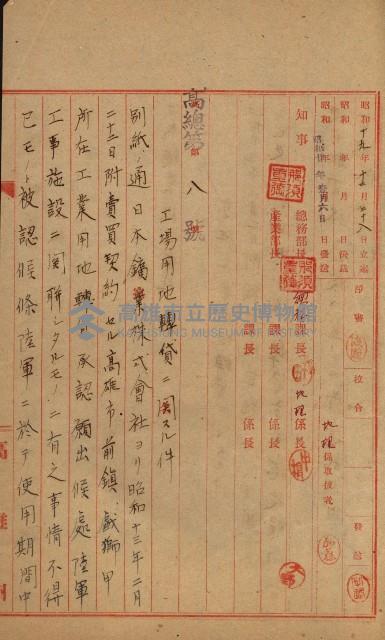 昭和十九年十二月二十八日立案
昭和　年　月　日決裁
昭和　年　壹月六日發送
印審
校合
發送
地理係取扱者
知事
總務部長
產業部長
課長
課長
課長
地理係長
係長
係長
高總第八號
工場用地轉貸ニ関スル件
別紙ノ通日本鑛業株式會社ヨリ昭和十三年二月
二十三日附賣買契約セル高雄市前鎮、戯獅甲
所在工業用地轉貸承認願出候處陸軍
工事施設ニ関聯シタルモノニ有之事情不得
已モノト被認候條陸軍ニ於テ使用期間中
高雄州
高雄市立歷史博物館
KAOHSIUNG MUSEUM OF HISTORY